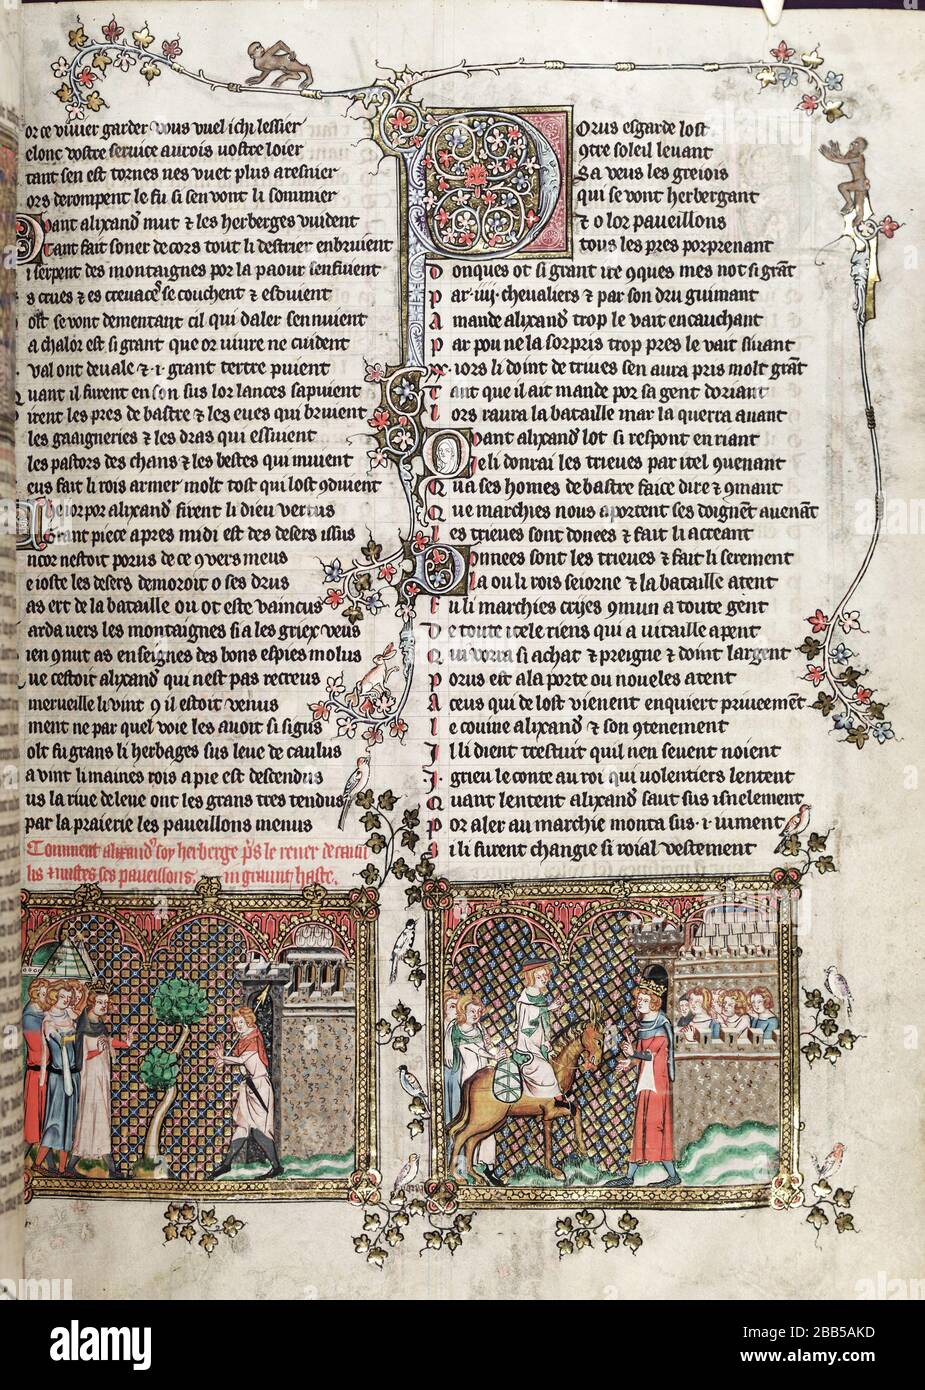 or ce vivier garder vous vuel ichi lessier
elonc vostre service aurois vostre loier
tant sen est tornes nes vuet plus aresnier
ors derompent le fu si sen vont li sommier
Quant alixand' mut & les herberges vuident
tant fait soner de cors tout li destrier enbruient
i serpent des montaignes por la paour senfuient
s crues & es crevaces se couchent & esbuient
ost se vont dementant cil qui daler sennuient
a chalor est si grant que or vivre ne cuident
val ont devale & .i. grant tertre puient
uant il furent en son sus lor lances sapuient
irent les pres de bastre & les eues qui bruient
les gaaigneries & les dras qui essuient
les pastors des chans & les bestes qui muient
eus fait li rois armer molt tost qui lost 9duient
heior por alixand' firent li dieu vertus
Grant piece apres midi est des desers issus
ncor nestoit porus de ce 9vers meus
e ioste les desers demoroit o ses drus
as ert de la bataille ou ot este vaincus
arda vers les montaignes si a les griex veus
ien 9nut as enseignes des bons espies molus
ue cestoit alixand' qui nest pas recreus
merveille li vint 9 il estoit venus
ment ne par quel voie les avoit si sigus
olt fu grans li herbages sus leue de caulus
a vint li maines rois a pie est descendus
us la rive de leve ont les grans tres tendus
par la praierie les paveillons menus
Comment alixand' soy herberge p's le rener de caul
lis & mistes ses paveillons. in graunt haste.
Porus esgarde lost
9tre soleil levant
Sa veus les greiois
qui se vont herbergant
& o lor paveillons
tous les pres porprenant
Donques ot si grant ire 9ques mes not si grāt
Par .iiij. chevaliers & par son dru guimant
Amande alixand' trop le vait encauchant
Par pou ne la sorpris trop pres le vait sivant
.xx. iors li doint de trives sen aura pris molt grāt
Tant que il ait mande por sa gent doriant
lors raura la bataille mar la querra avant
Quant alixand' lot si respont en riant
Je li donrai les trieues par itel 9venant
Qua ses homes de bastre face dire & 9mant
Que marchies nous aportent ses doignēt avenāt
les trieues sont donees & fait li acreant
Donnees sont les trieues & fait li serement
La ou li rois seiorne & la bataille atent
Fu li marchies criies 9mun a toute gent
De toute itele riens qui a vitaille apent
Qui vorra si achat & preigne & doint largent
Porus est a la porte ou noveles atent
A ceus qui de lost vienent enquiert priveement
le covine alixand' & son 9tenement
Jl li dient trestuit quil nen sevent noient
Jgrieu le conte au roi qui volentiers lentent
Quant lentent alixand' saut sus isnelement
Por aler au marchie monta sus .i. iument
Si li furent changie si roial vestement
alamy
Image ID: 2BB5AKD
www.alamy.com